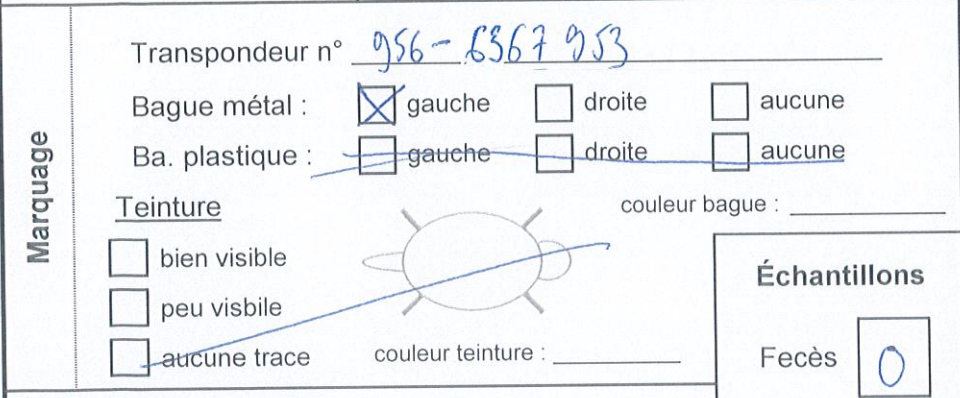 Marquage
Transpondeur n° 956-6367 953
Bague métal : gauche droite aucune
Ba. plastique : gauche droite aucune
Teinture
couleur bague :
bien visible
peu visbile
aucune trace
couleur teinture :
Échantillons
Fecès 0